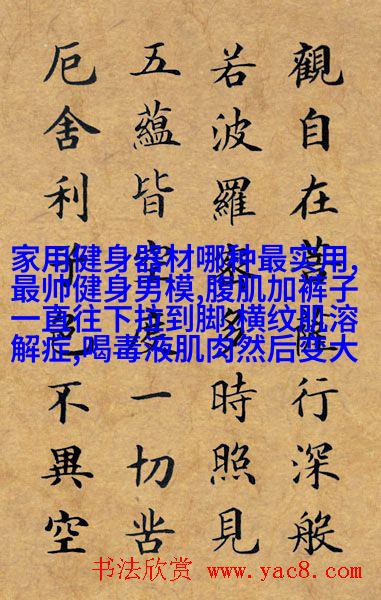 觀自在菩薩行深般
若波羅蜜多時照見
五蘊皆空度一切苦
厄舍利子色不異空
家用健身器材哪种最实用,
最帅健身男模,腹肌加裤子
一直往下拉到脚,横纹肌溶
解症,喝毒液肌肉然后变大
书法欣赏 www.yac8.com